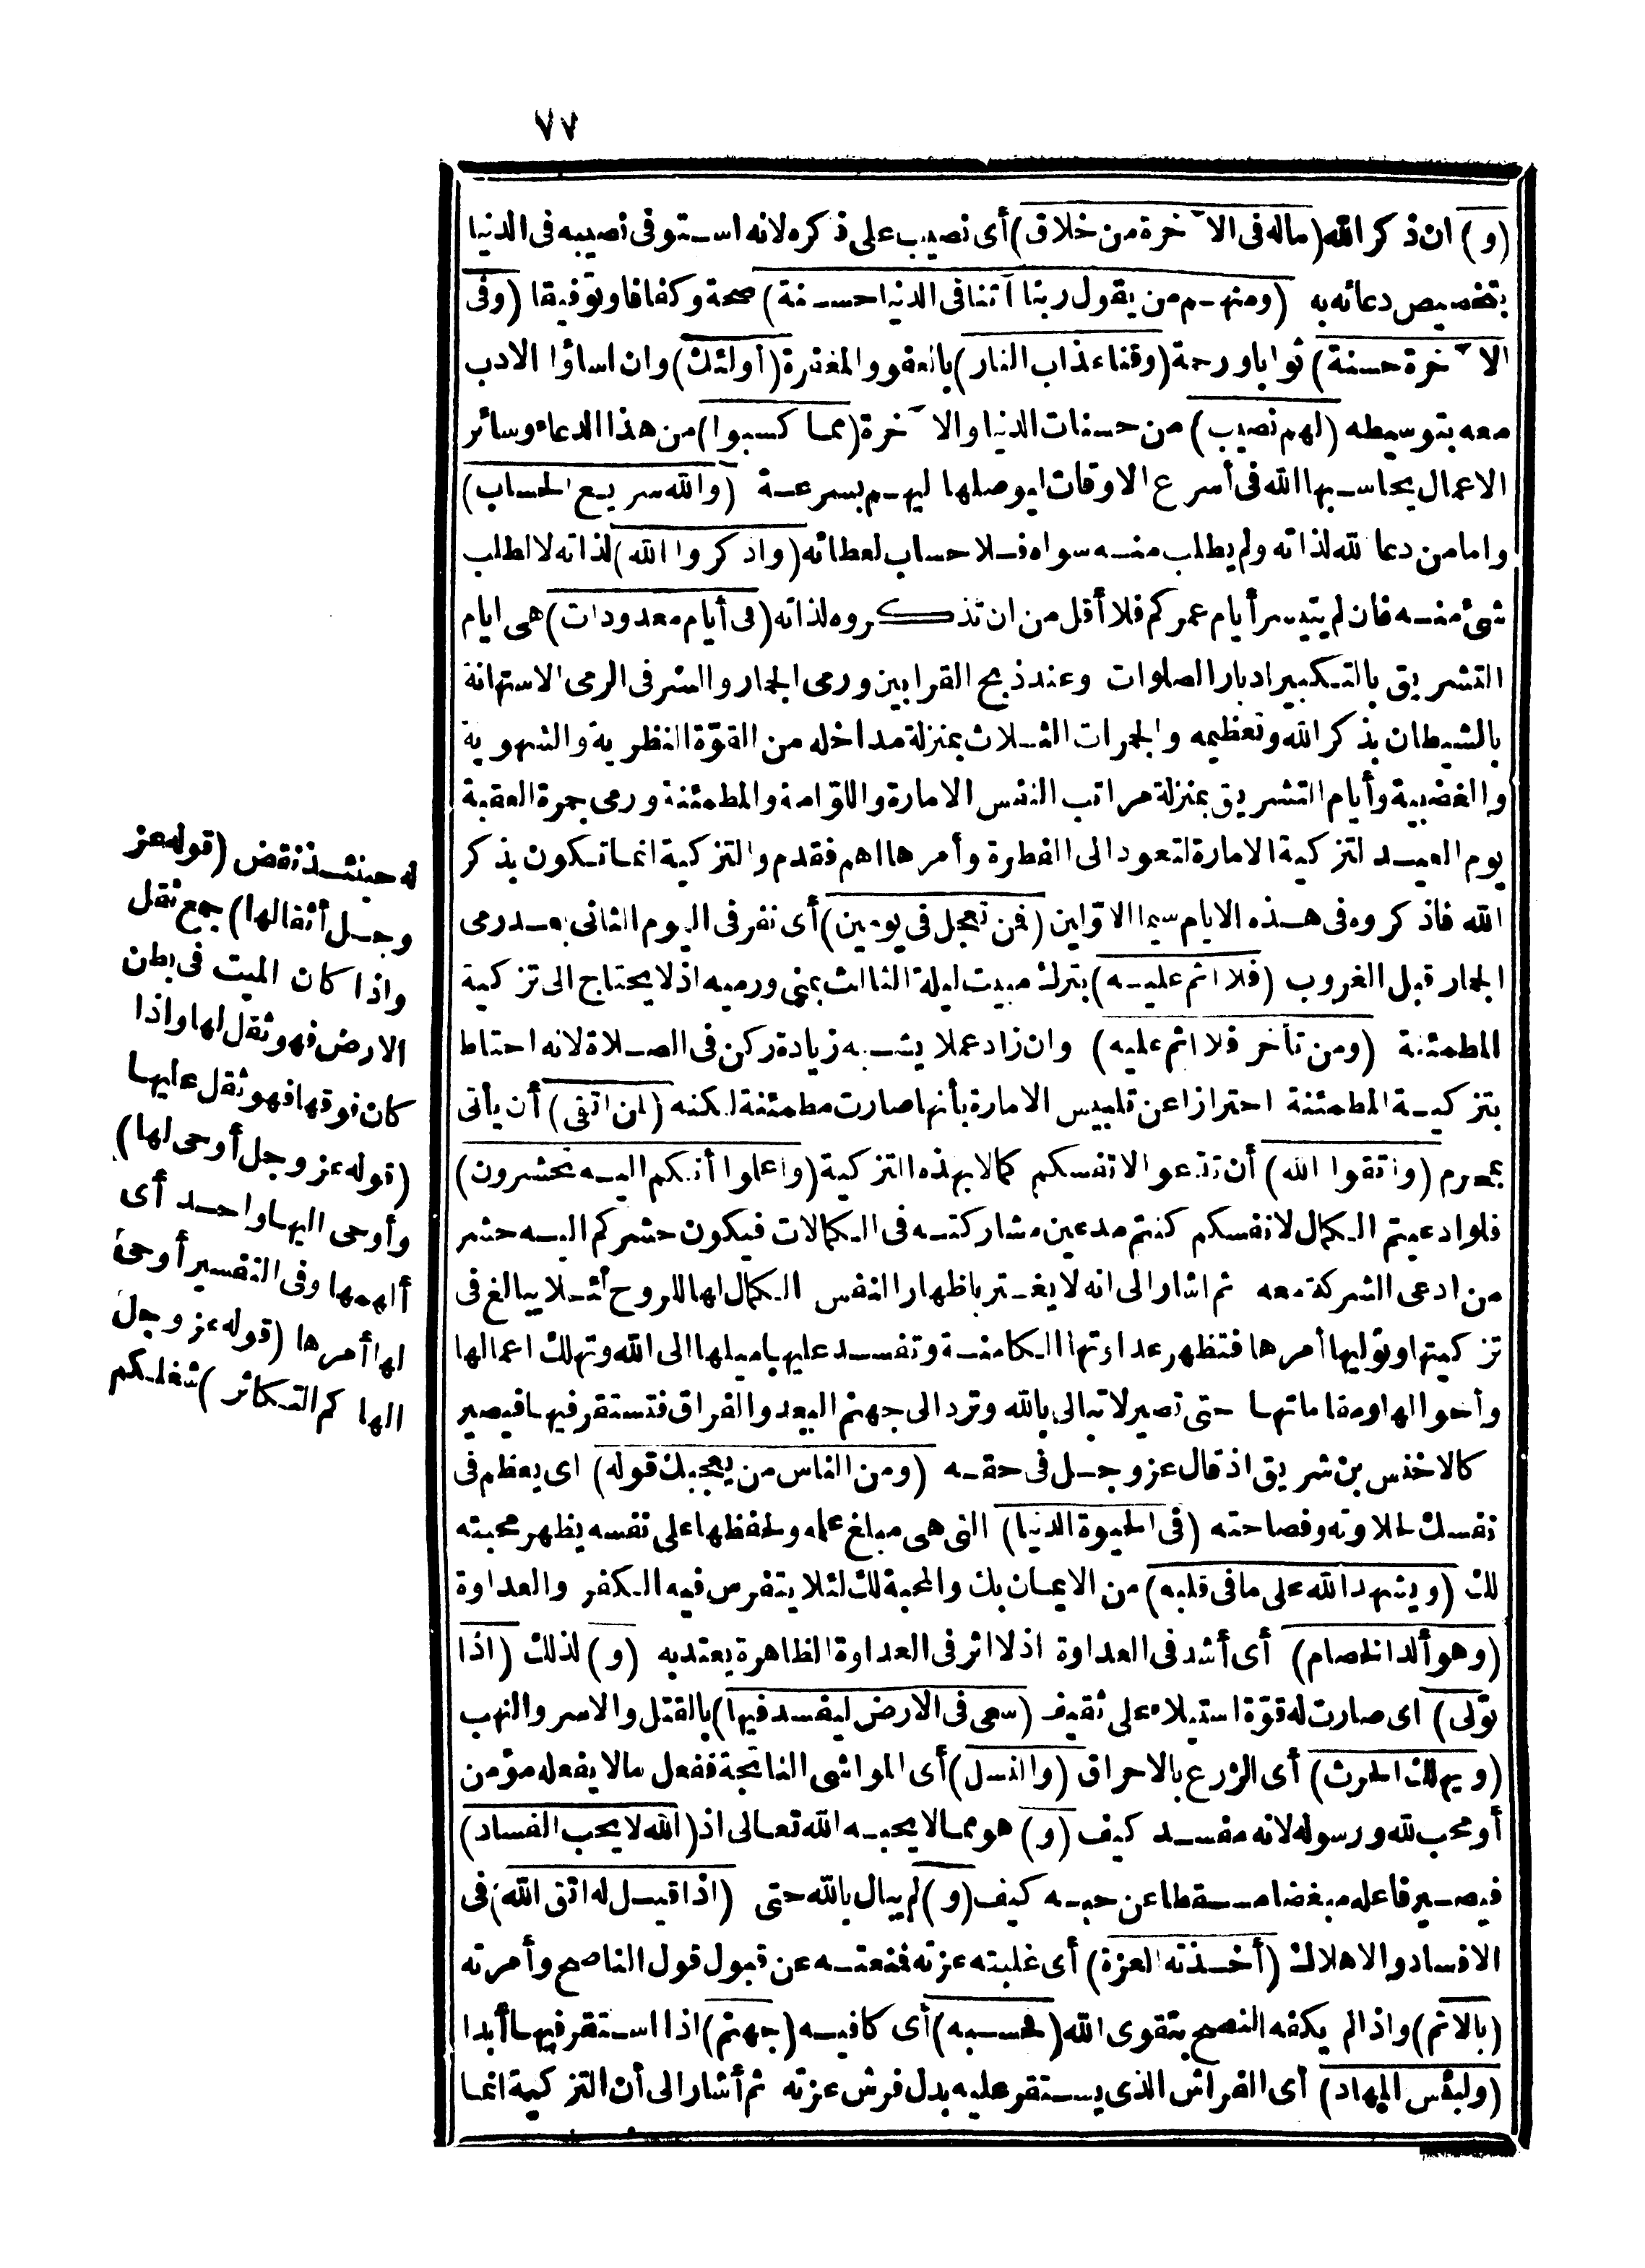 ٧٧
(و) ان ذكر الله (ماله فى الآخرة من خلاق) أى نصيب على ذكره لانه استوفى نصيبه فى الدنيا
بتخصيص دعائه به (ومنهم من يقول ربنا آتنا فى الدنيا حسنة) صحة وكفافا وتوفيقا (وفى
الآخرة حسنة) ثوابا ورحمة (وقنا عذاب النار) بالعفو والمغفرة (أولئك) وان اساؤا الادب
معه بتوسيطه (لهم نصيب) من حسنات الدنيا والآخرة (مما كسبوا) من هذا الدعاء وسائر
الاعمال يحاسبها الله فى أسرع الاوقات ليوصلها اليهم بسرعة (والله سريع الحساب)
واما من دعا لله لذاته ولم يطلب منه سواه فلا حساب لعطائه (واذكروا الله) لذاته لا لطلب
شئ منه فان لم يتيسر أيام عمركم فلا أقل من ان تذكروه لذاته (فى أيام معدودات) هى ايام
التشريق بالتكبير ادبار الصلوات وعند ذبح القرابين ورمى الجمار والسر فى الرمى الاستهانة
بالشيطان بذكر الله وتعظيمه والجمرات الثلاث بمنزلة مداخله من القوّة النظرية والشهوية
والغضبية وأيام التشريق بمنزلة مراتب النفس الامارة واللوّامة والمطمئنة ورمى جمرة العقبة
يوم العيد لتزكية الامارة لتعود الى الفطرة وأمرها اهم فقدم والتزكية انما تكون بذكر
الله فاذكروه فى هذه الايام سيما الاوّلين (فمن تعجل فى يومين) أى نفر فى اليوم الثانى بعد رمى
الجمار قبل الغروب (فلا اثم عليه) بترك مبيت ليلة الثالث بمنى ورميه اذ لا يحتاج الى تزكية
المطمئنة (ومن تأخر فلا اثم عليه) وان زاد عملا يشبه زيادة ركن فى الصلاة لانه احتاط
بتزكية المطمئنة احترازا عن تلبيس الامارة بأنها صارت مطمئنة لكنه (لمن اتقى) أن يأتى
بمحرم (واتقوا الله) أن تدعوا لانفسكم كمالا بهذه التزكية (واعلموا أنكم اليه تحشرون)
فلو ادعيتم الكمال لانفسكم كنتم مدعين مشاركته فى الكمالات فيكون حشركم اليه حشر
من ادعى الشركة معه ثم اشار الى انه لا يغتر باظهار النفس الكمال لها للروح لئلا يبالغ فى
تزكيتها وتوليها أمرها فتظهر عداوتها الكامنة وتفسد عليها ميلها الى الله وتهلك اعمالها
وأحوالها ومقاماتها حتى تصير لا تبالى بالله وترد الى جهنم البعد والفراق فتستقر فيها فيصير
كالاخنس بن شريق اذ قال عز وجل فى حقه (ومن الناس من يعجبك قوله) اى يعظم فى
نفسك لحلاوته وفصاحته (فى الحيوة الدنيا) التى هى مبلغ علمه ولحفظها على نفسه يظهر محبته
لك (ويشهد الله على ما فى قلبه) من الايمان بك والمحبة لك لئلا يتفرس فيه الكفر والعداوة
(وهو ألد الخصام) أى أشد فى العداوة اذ لا اثر فى العداوة الظاهرة يعتد به (و) لذلك (اذا
تولى) اى صارت له قوّة استيلاء على ثقيف (سعى فى الارض ليفسد فيها) بالقتل والاسر والنهب
(ويهلك الحرث) أى الزرع بالاحراق (والنسل) أى المواشى الناتجة ففعل مالا يفعله مؤمن
أو محب لله ورسوله لانه مفسد كيف (و) هو مما لا يحبه الله تعالى اذ (الله لا يحب الفساد)
فيصير فاعله مبغضا مسقطا عن حبه كيف (و) لم يبال بالله حتى (اذا قيل له اتق الله) فى
الافساد والاهلاك (أخذته العزة) أى غلبته عزته فمنعته عن قبول قول الناصح وأمرته
(بالاثم) واذا لم يكفه النصح بتقوى الله (فحسبه) أى كافيه (جهنم) اذا استقر فيها أبدا
(ولبئس المهاد) أى الفراش الذى يستقر عليه بدل فرش عزته ثم أشار الى أن التزكية انما
له حينئذ نقض (قوله عز
وجل أثقالها) جمع ثقل
واذا كان الميت فى بطن
الارض فهو ثقل لها واذا
كان فوقها فهو ثقل عليها
(قوله عز وجل أوحى لها)
وأوحى اليها واحد أى
ألهمها وفى التفسير أوحى
لها أمرها (قوله عز وجل
الها كم التكاثر) شغلكم